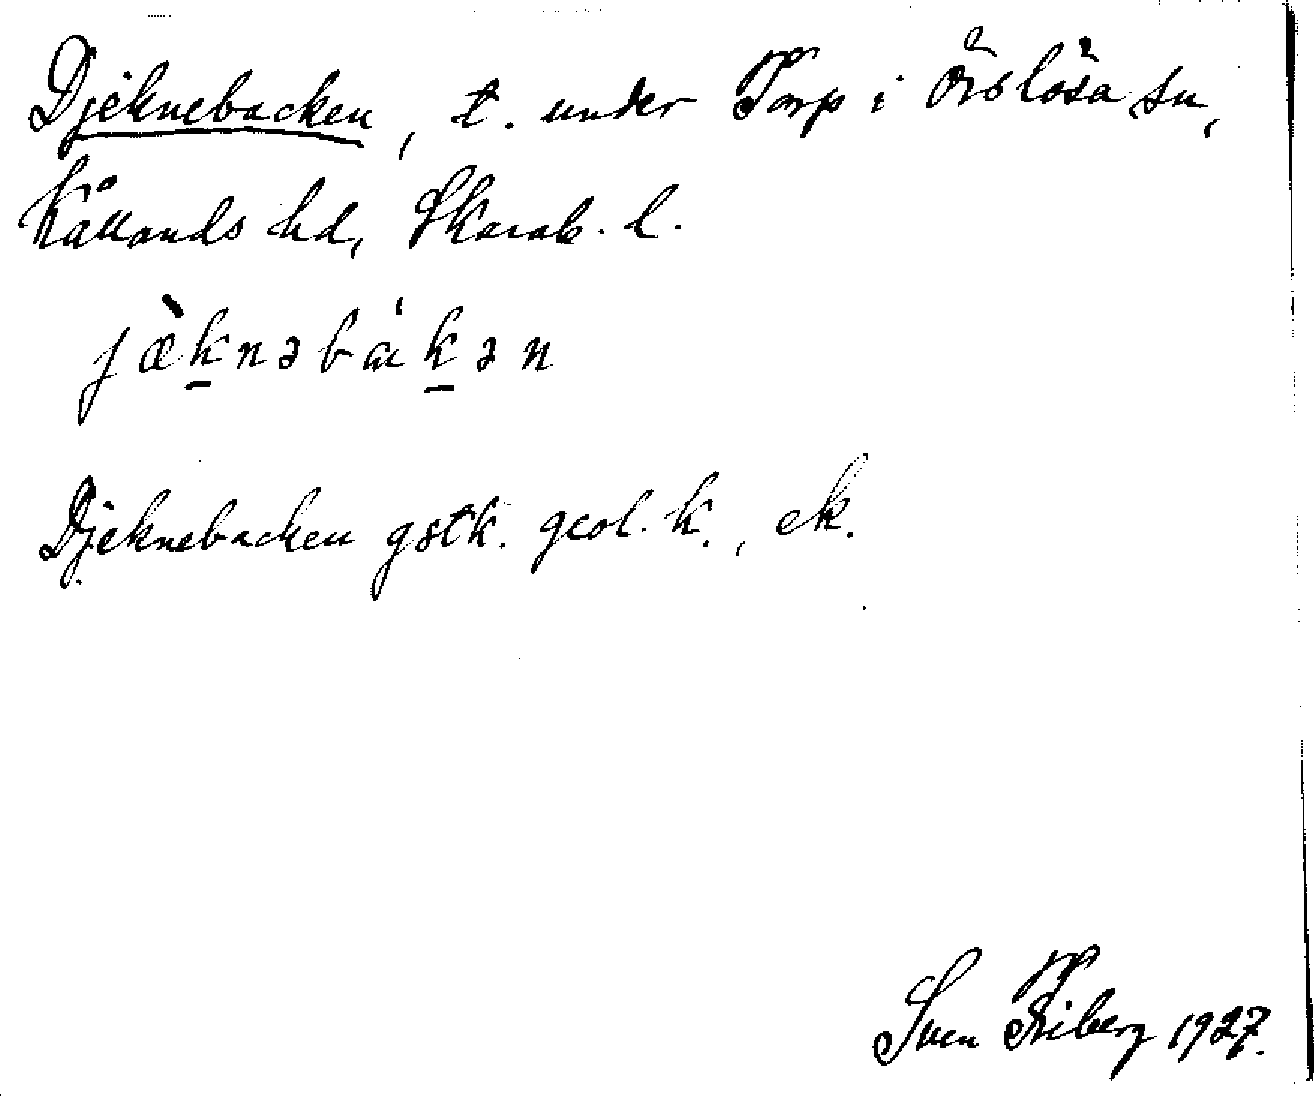 Djeknebacken, t. under Torp i Örslösa sn,
Kållands hd, Skarab. l.
jæ̀k̠nəbák̠ən
Djeknebacken gstk. geol. k., ek.
Sven Friberg 1927.